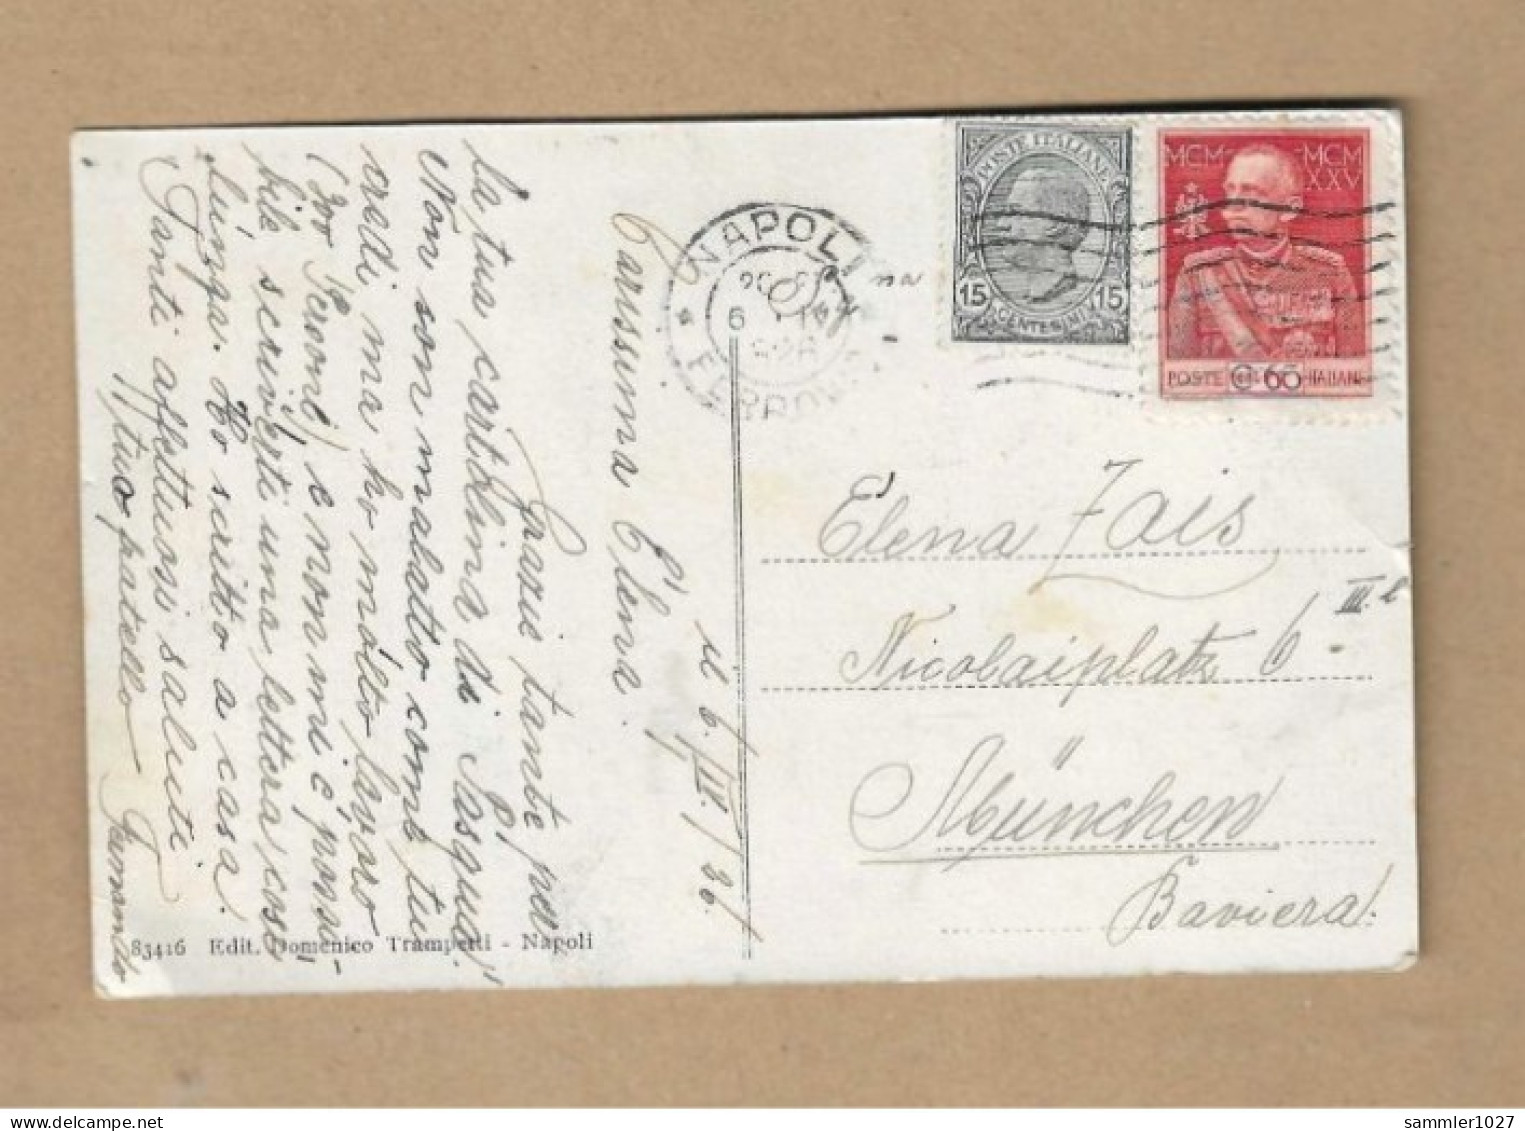 Napoli 6/IV/26.
Carissima Elena.
Grazie tante per
la tua cartolina di Pasqua.
Non son malatto come tu
credi ma ho molto lavoro
e non mi è possi-
bile scriverti una lettera cosi
lunga. Ho scritto a casa.
Tanti affettuosi saluti
tuo fratello
NAPOLI
6
FERROVIA
POSTE ITALIANE
15 15
CENTESIMI
MCM MCM
XXV
POSTE C. 60 ITALIANE
Elena Zais
Nicolaiplatz 6 III.
München
Baviera.
83416 Edit. Domenico Trampetti - Napoli
sammler1027